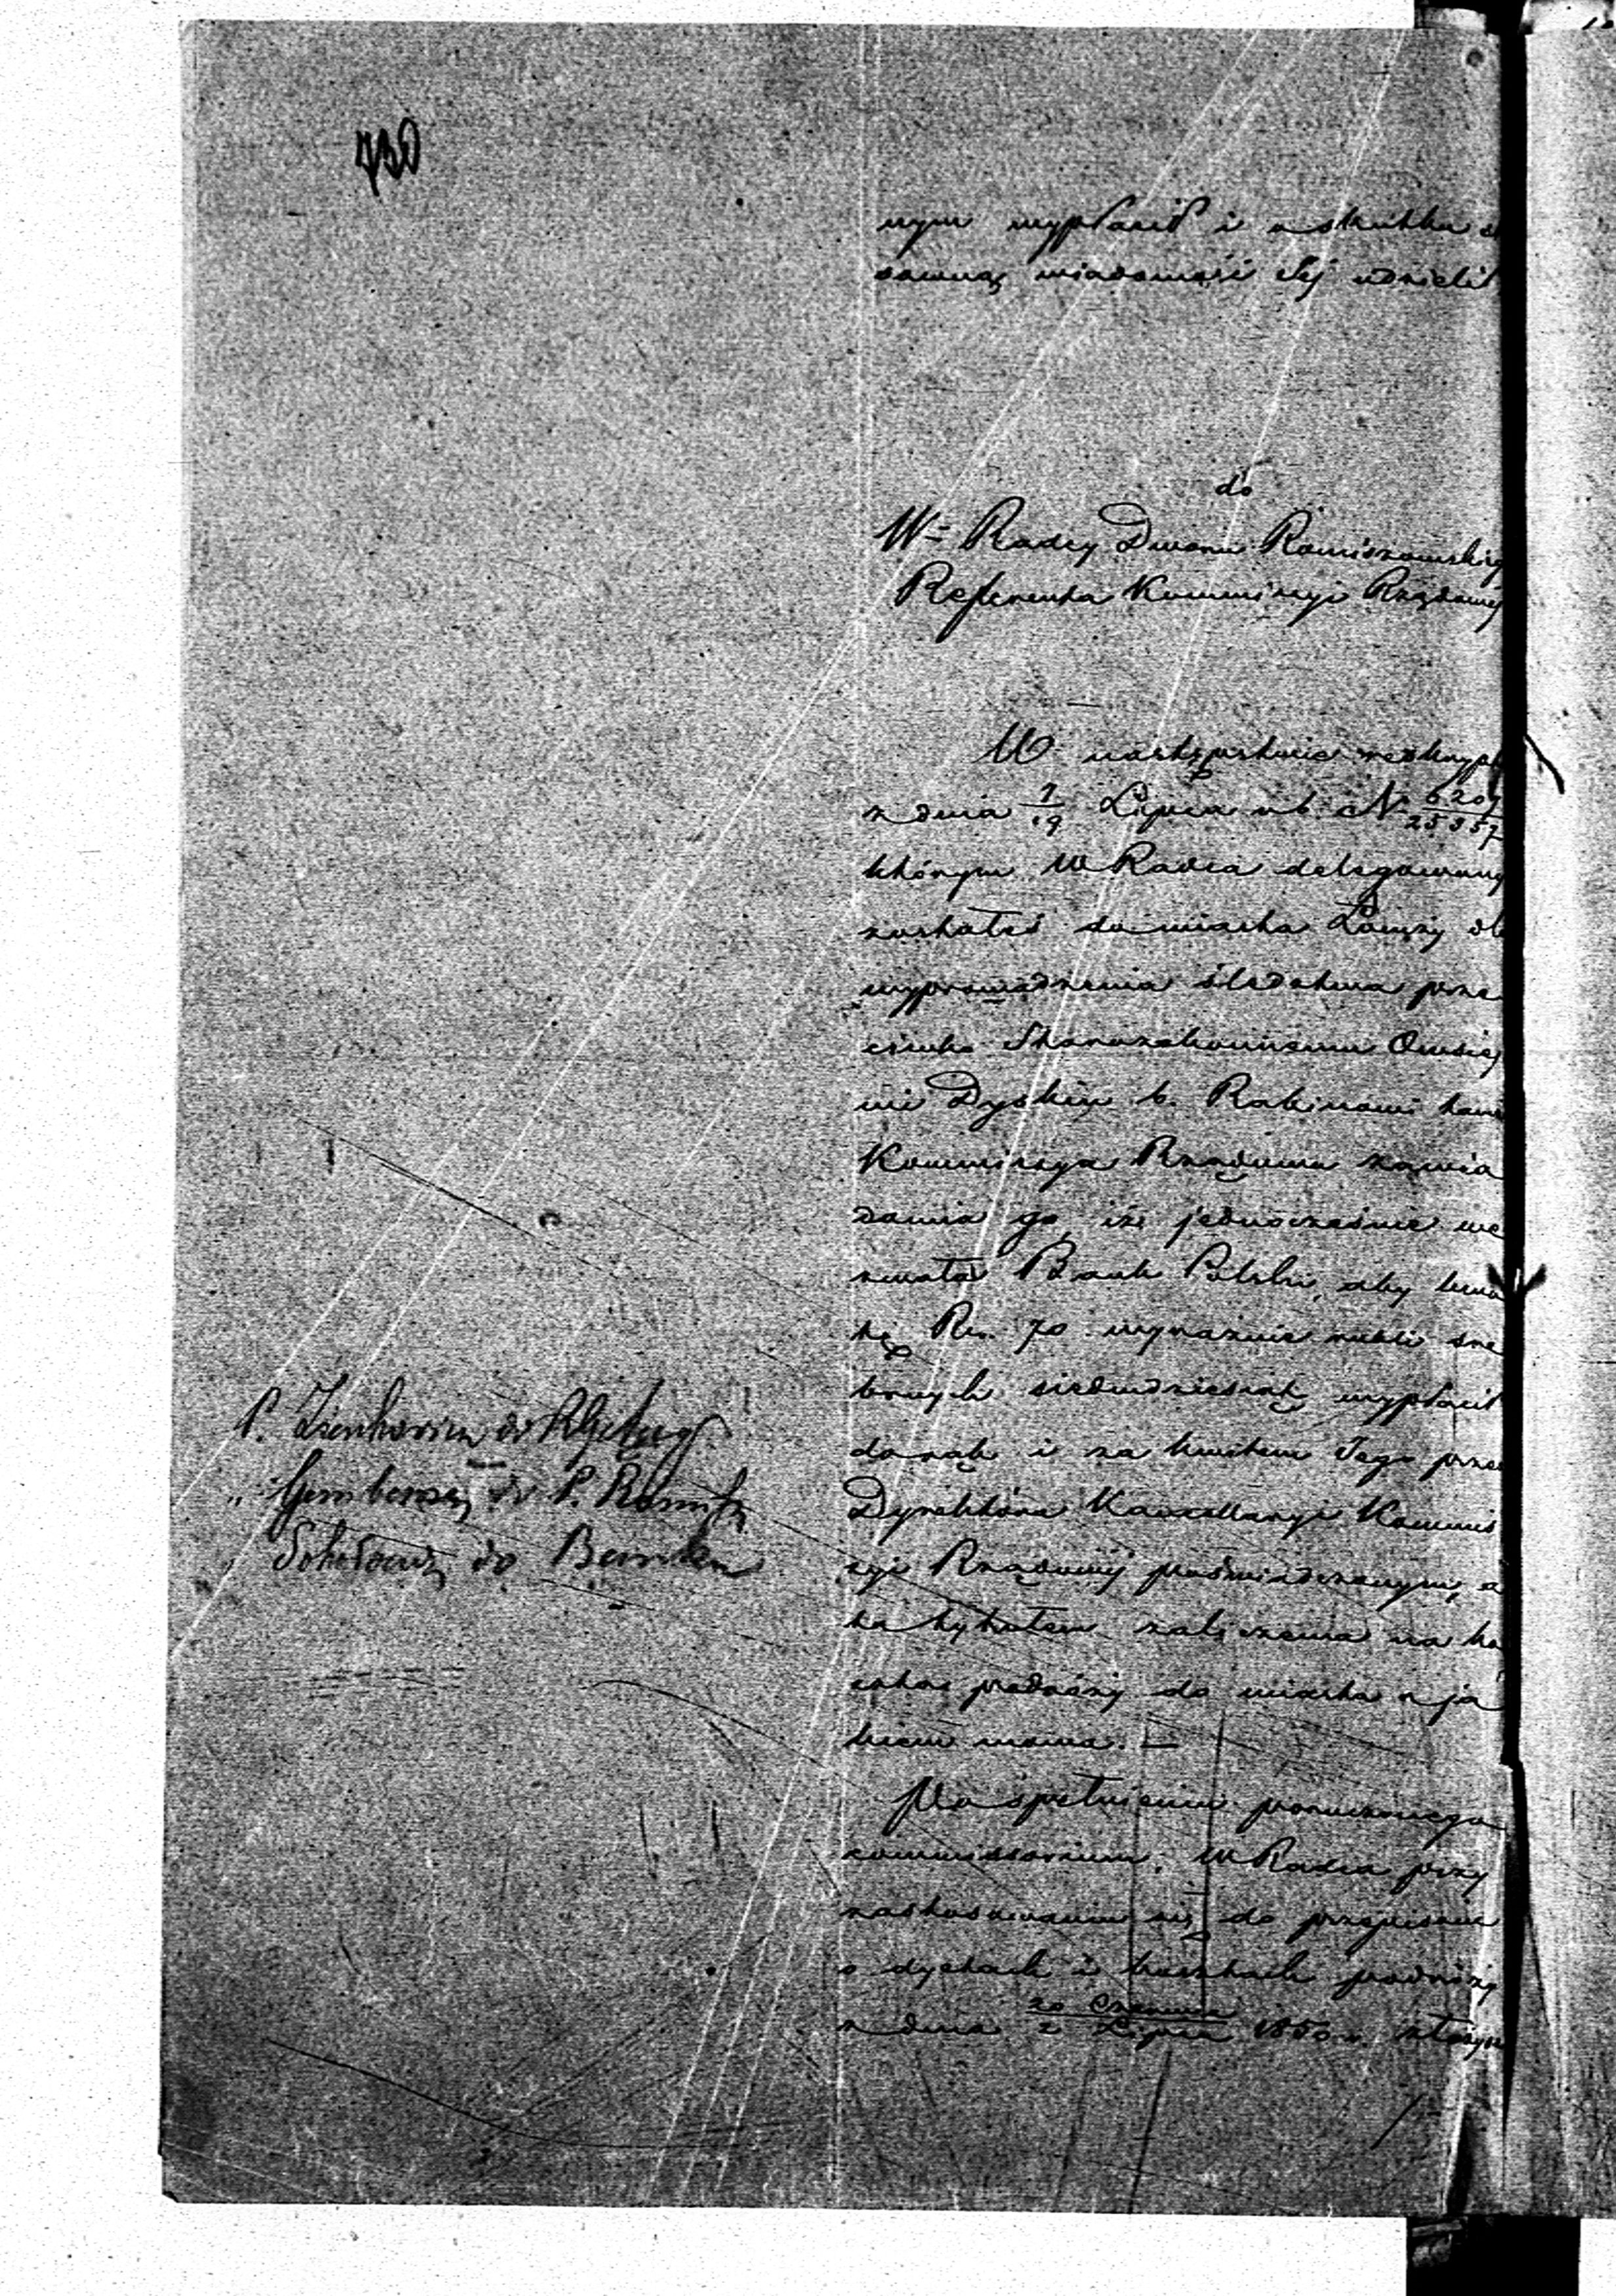 730
nym wypłacił i o skutku
sowną wiadomość Jej udzielił
do
W= Radcy Dworu Romiszowskieg
Referenta Kommissyi Rządowej
W następstwie reskryp
z dnia 7/19 Lipca rb. N 6207/25357
którym WRadca delegowany
zostałeś do miasta Łomży dl
wyprowadzenia śledztwa prze
ciwko Starozakonnemu Owsiej
wi Dyskin b. Rabinowi tam
Kommissya Rządowa zawia
damia go, iż jednocześnie we
zwała Bank Polski, aby kwo
tę Rs. 70 wyraźnie rubli sre
brnych siedmdziesiąt wypłacił
do rąk i za kwitem Jego prze
Dyrektora Kancellaryi Kommis
syi Rządowej poświadczonym, a
to tytułem zaliczenia na ko
szta podróży do miasta o ja
kiem mowa. —
Po spełnieniu poruczonego
commissorium, WRadca przy
zastosowaniu się do przepisów
o dyetach i kosztach podróży
z dnia 20 Czerwca/2 Lipca 1850 r. złożysz
P. Isenhowicz do
" do P.
Sokołowski do